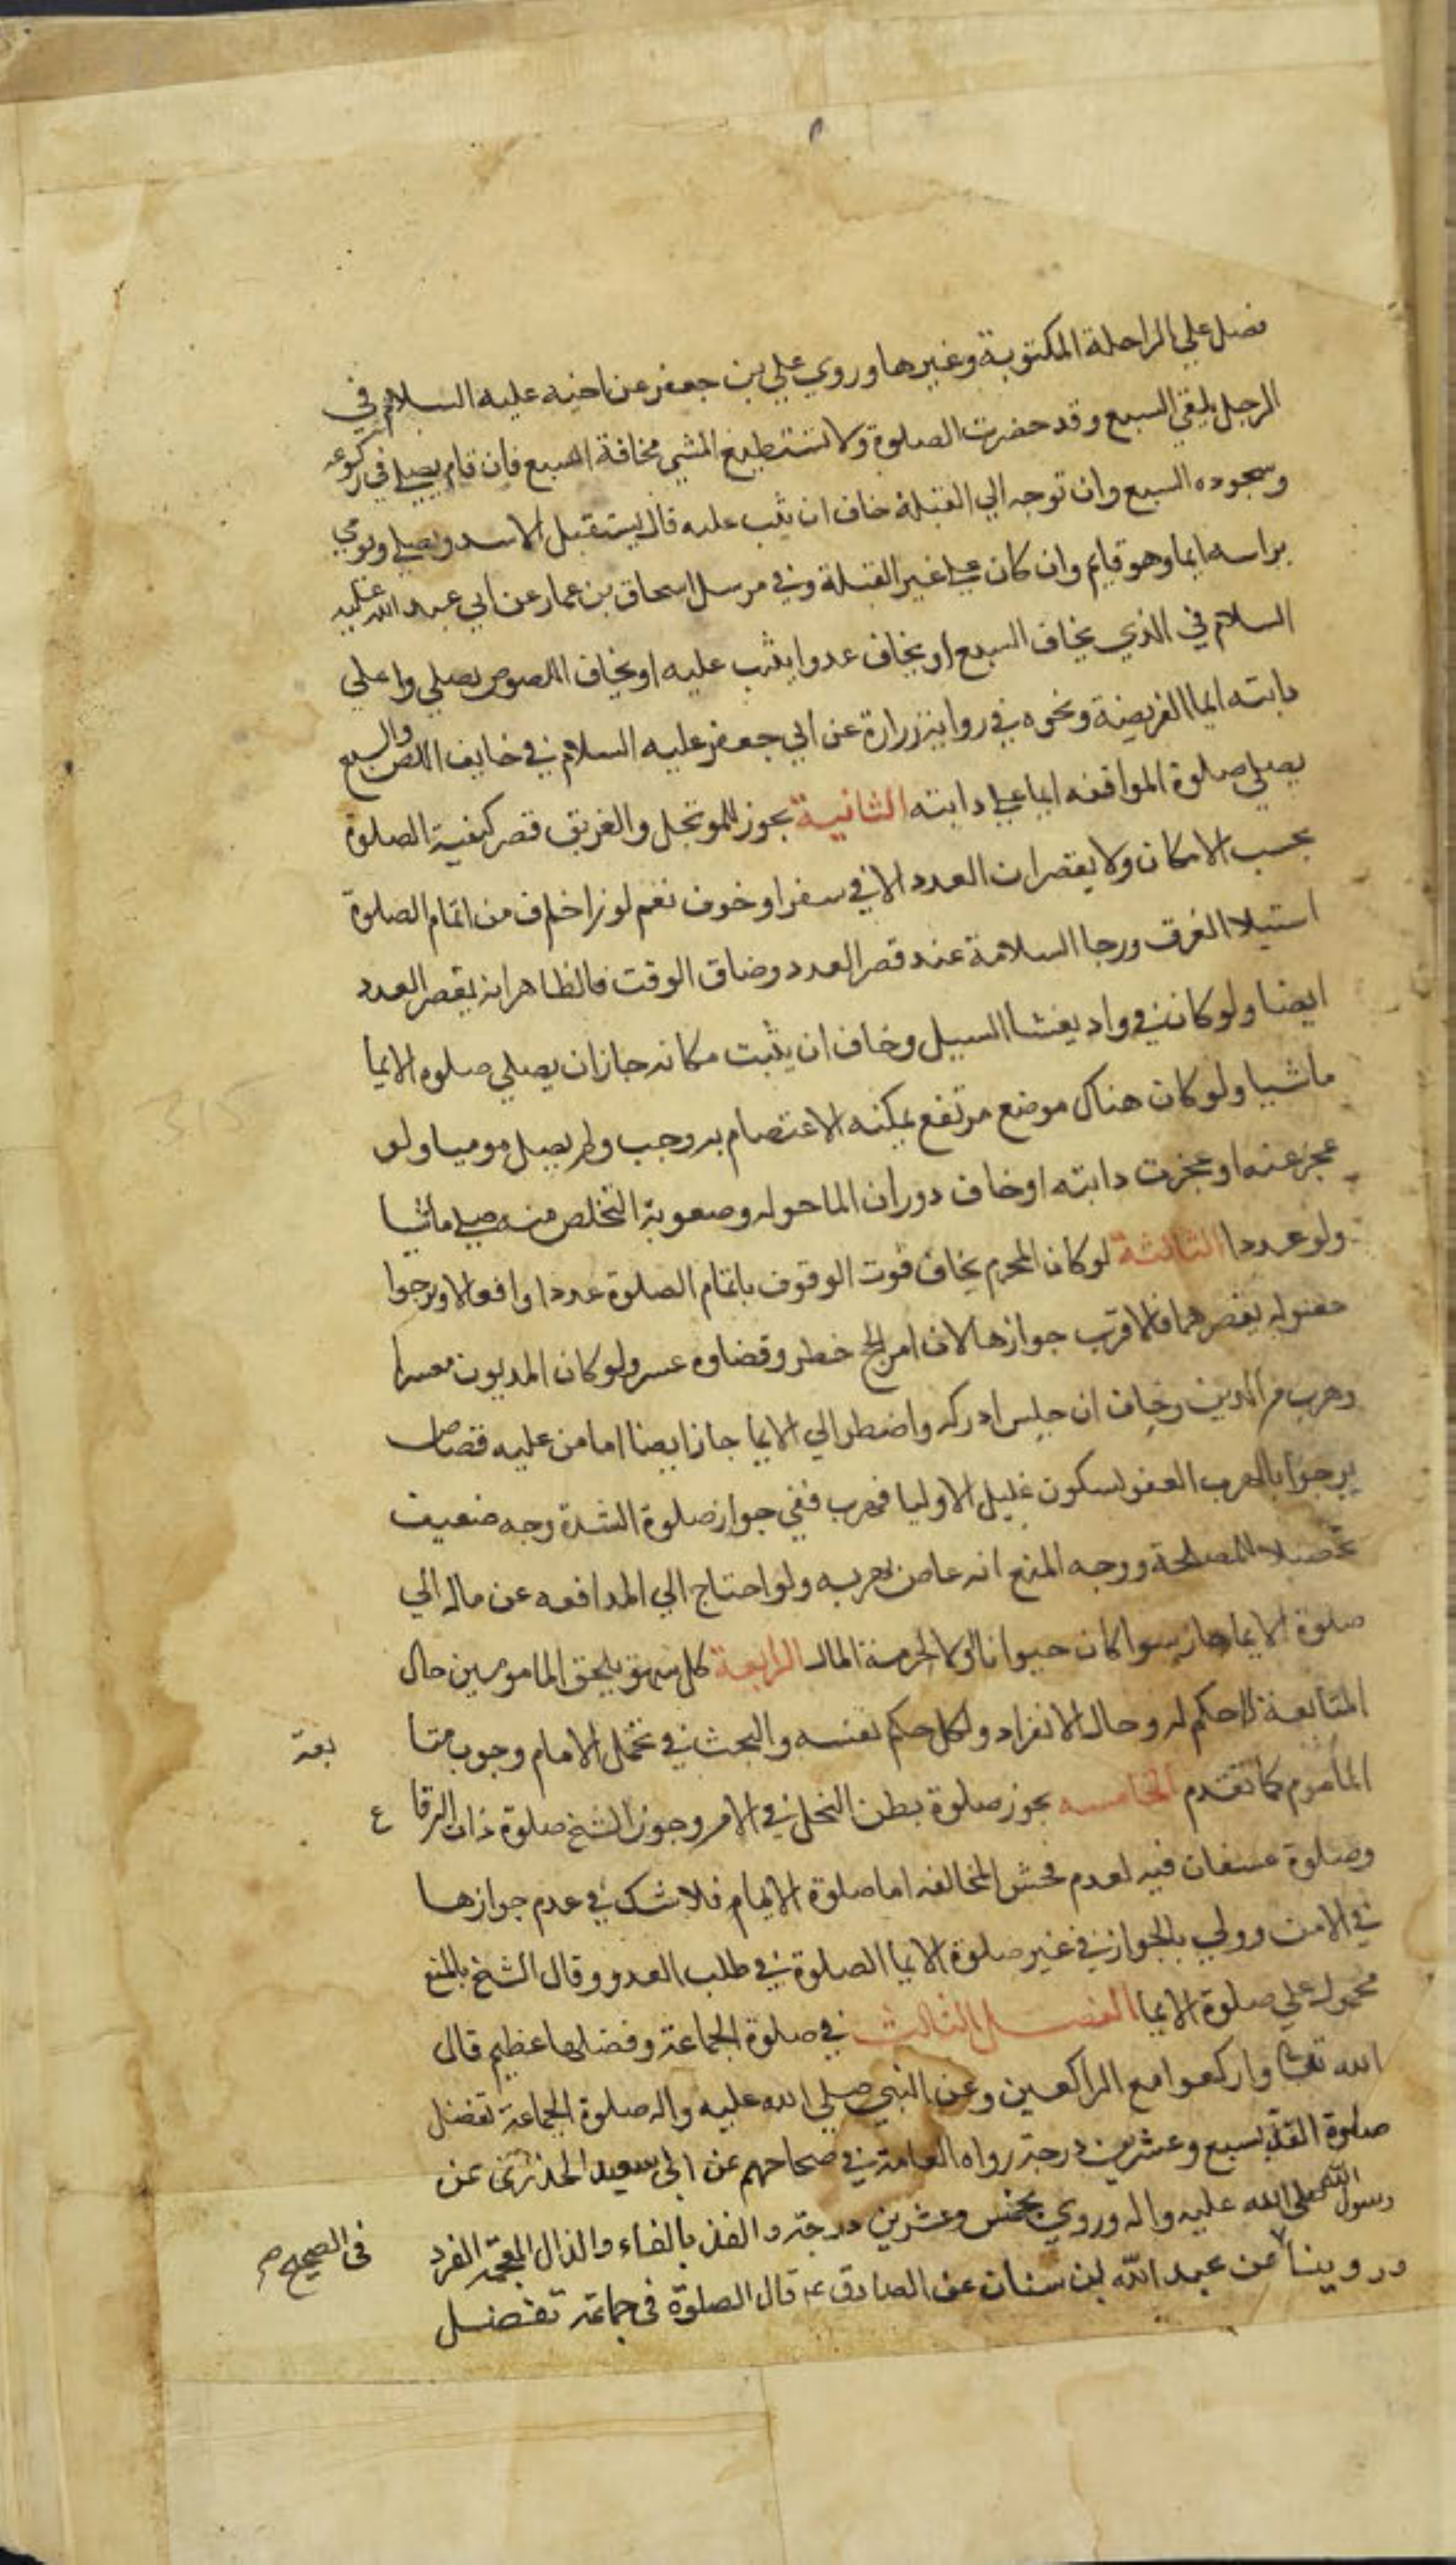 فصل علي الراحلة المكتوبة وغيرها وروي علي بن جعفر عن اخيه عليه السلام في
الرجل يلقي السبع وقد حضرت الصلوة ولا تستطيع المشي مخافة السبع فان قام يصلي في ركوعه
وسجوده السبع وان توجه الي القبلة خاف ان يثب عليه قال يستقبل الاسد ويصلي ويومي
براسه ايما وهو قايم وان كان علي غير القبلة وفي مرسل اسحاق بن عمار عن ابي عبد الله عليه
السلام في الذي يخاف السبع او يخاف عدوا يثب عليه او يخاف اللصوص يصلي علي
دابته ايما الفريضة ونحوه في رواية زرارة عن ابي جعفر عليه السلام في خايف اللص والسبع
يصلي صلوة المواقفه ايما علي دابته الثانية يجوز للموتحل والغريق قصر كيفية الصلوة
بحسب الامكان ولا يقصران العدد الا في سفر او خوف نعم لو خاف من اتمام الصلوة
استيلا الغرق ورجا السلامة عند قصر العدد وضاق الوقت فالظاهر انه يقصر العدد
ايضا ولو كان في واد يغشا السيل وخاف ان يثبت مكانه جاز ان يصلي صلوه الايما
ماشيا ولو كان هناك موضع مرتفع يمكنه الاعتصام به وجب ولم يصل موميا ولو
عجز عنه او عجزت دابته او خاف دوران الما حوله وصعوبة التخلص منه صلي ماشيا
ولو عددا الثالثة لو كان المحرم يخاف فوت الوقوف باتمام الصلوة عددا وافعالا ويرجوا
حصوله بقصرهما فالاقرب جوازها لان امر الحج خطر وقضاوه عسر ولو كان المديون معسرا
وهرب من الدين وخاف ان حبس ادركه واضطر الي الايما جاز ايضا اما من عليه قصاص
يرجوا بالهرب العفو لسكون غليل الاوليا فهرب ففي جواز صلوة الشدة وجه ضعيف
تحصيلا للمصلحة ووجه المنع انه عاص بهربه ولو احتاج الي المدافعه عن ماله الي
صلوة الايما جاز سوا كان حيوانا اولا لحرمة المال الرابعة كل سهو يلحق المامومين حال
المتابعة لا حكم له وحال الانفراد ولكل حكم نفسه والبحث في تحمل الامام وجوب متا
بعة
المأموم كما تقدم الخامسه يجوز صلوة بطن النخل في الامن وجوز الشيخ صلوة ذات الرقا
ع
وصلوة عسفان فيه لعدم فحش المخالفه اما صلوة الايما فلا شك في عدم جوازها
في الامن وولي بالجواز في غير صلوة الايما الصلوة في طلب العدو وقال الشيخ بالمنع
محمول علي صلوة الايما الفصل الثالث في صلوة الجماعة وفضلها عظيم قال
الله تعالى واركعوا مع الراكعين وعن النبي صلي الله عليه واله صلوة الجماعة تفضل
صلوة الفذ بسبع وعشرين درجة رواه العامة في صحاحهم عن ابى سعيد الخدرى عن
رسول الله صلى الله عليه واله وروي بخمس وعشرين درجة والفذ بالفاء والذال المعجمه الفرد
وروينا عن عبد الله بن سنان عن الصادق ع قال الصلوة فى جماعة تفضل
فى الصحيح